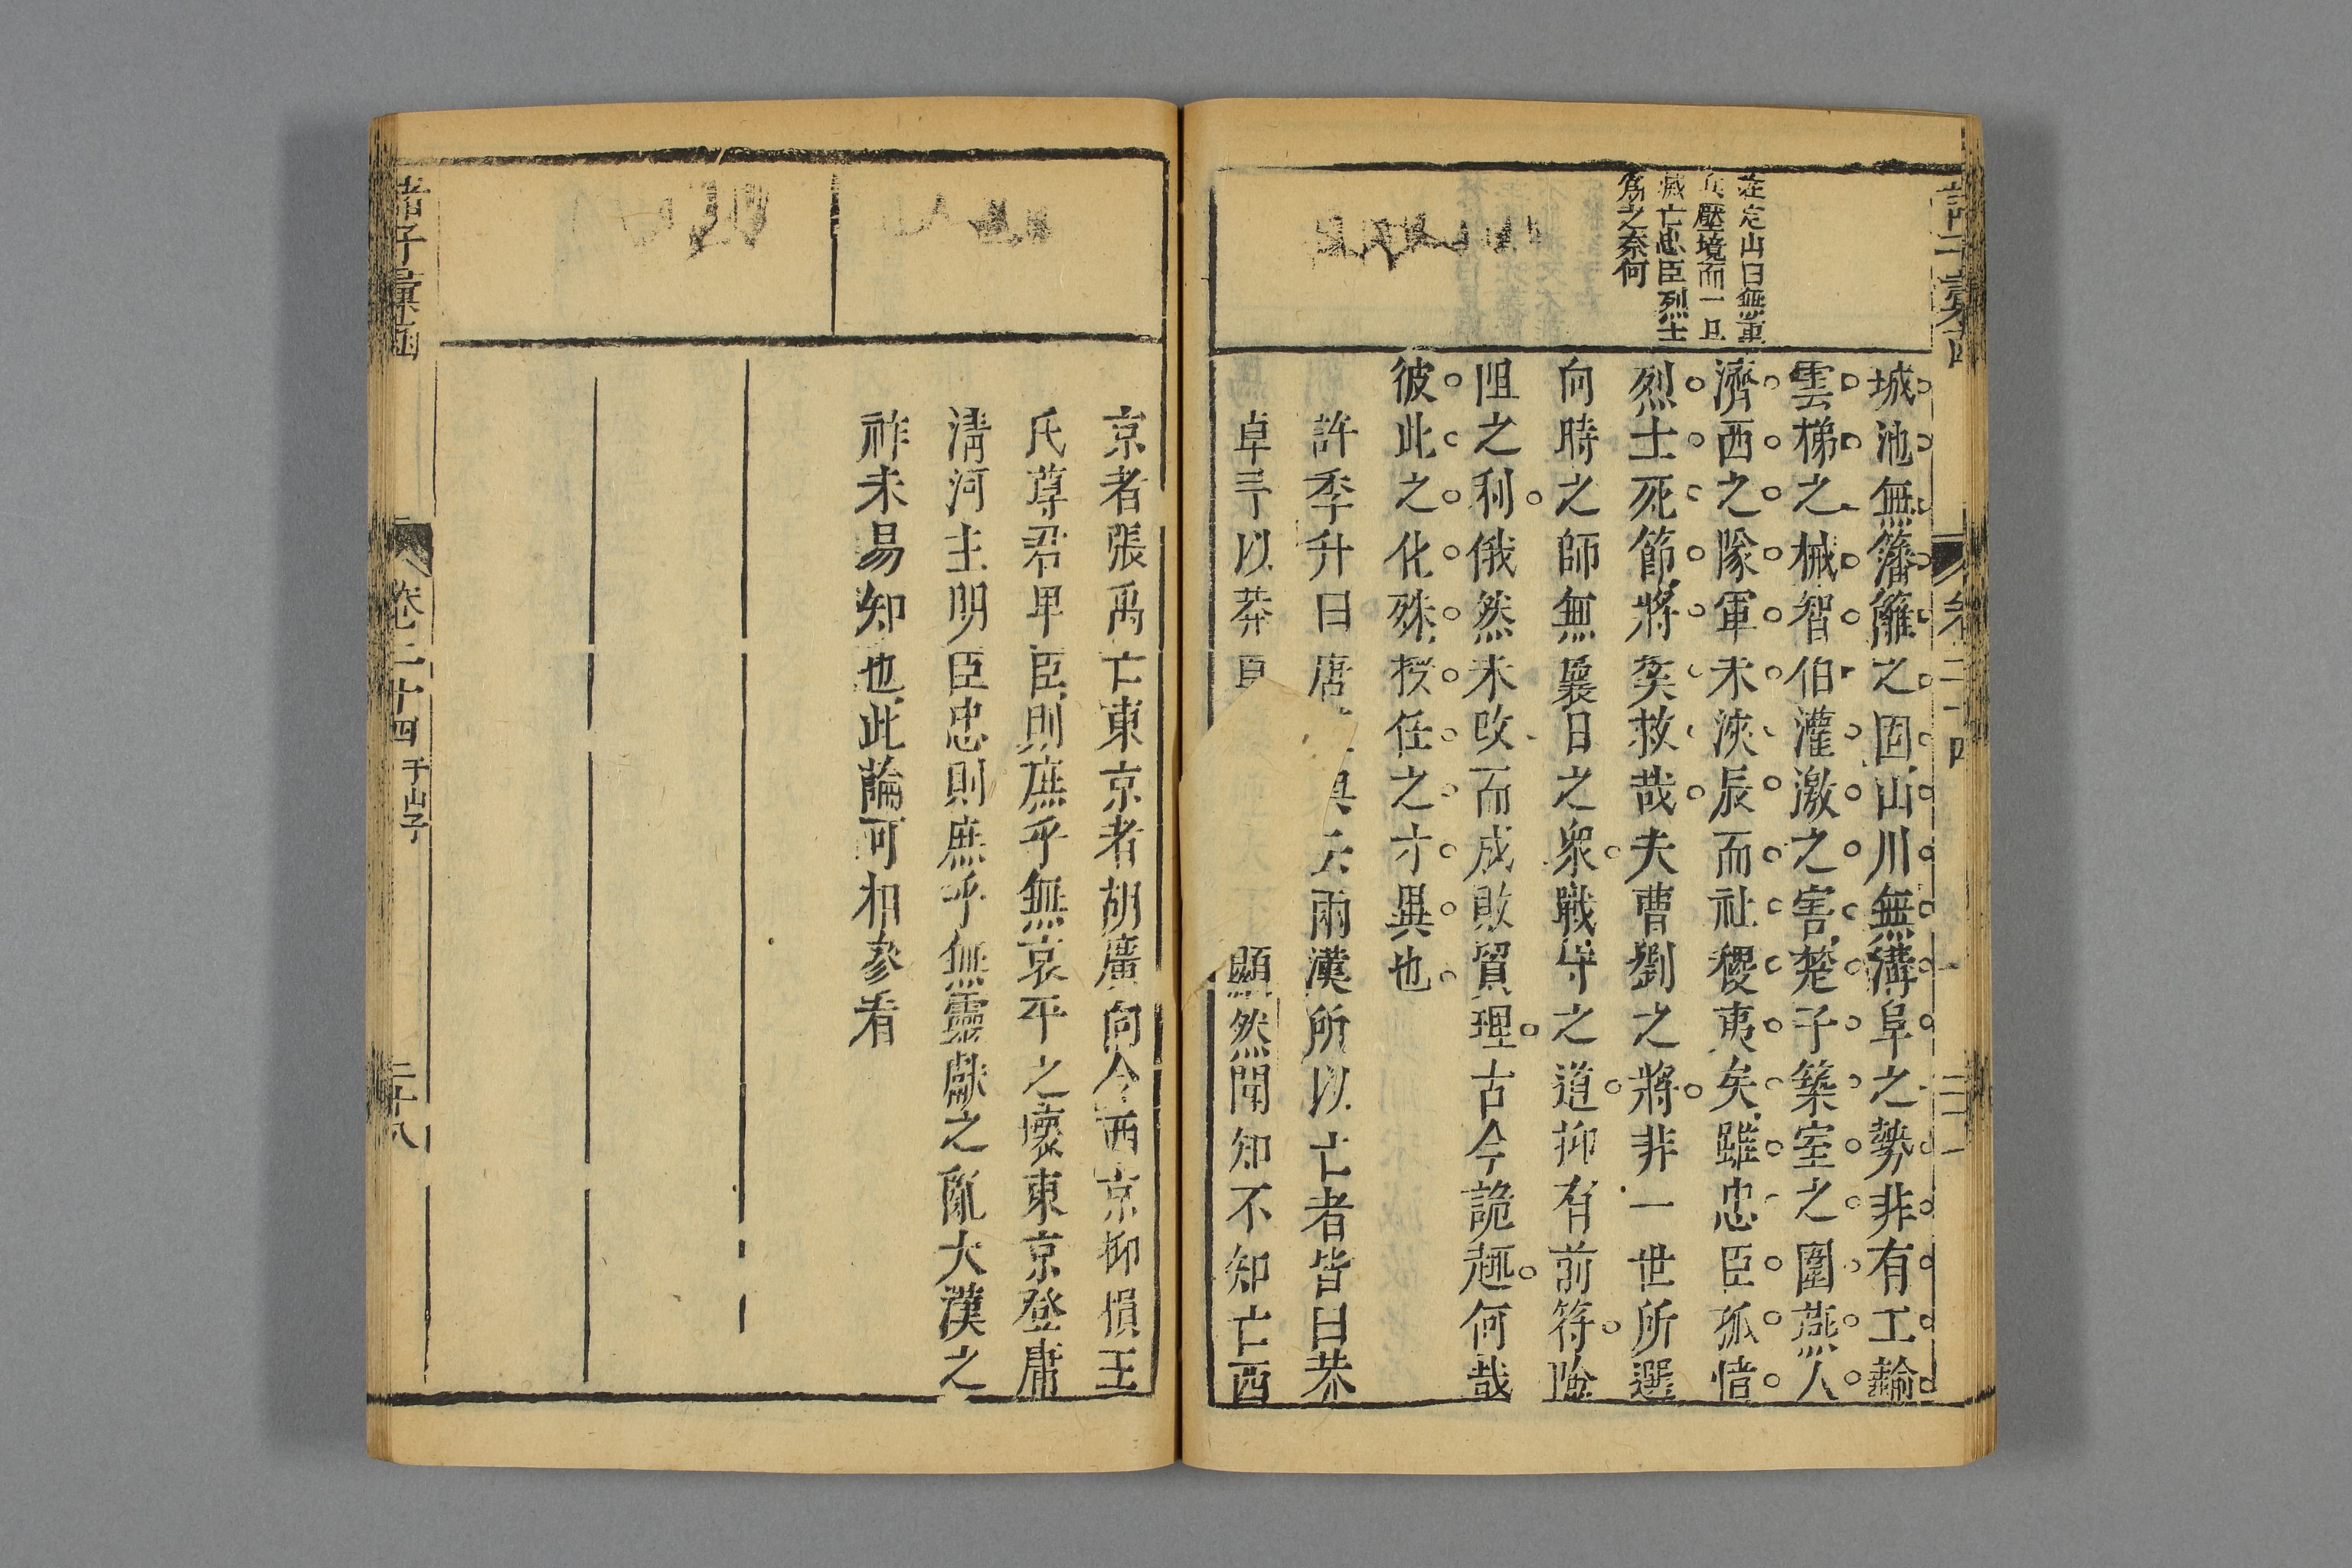 莊定山曰無重
兵壓境而一旦
滅亡忠臣烈士
為之奈何
城池無籓籬之固山川無溝阜之勢非有工輸
雲梯之械智伯灌激之害楚子築室之圍燕人
濟西之隊軍未浹辰而社稷夷矣雖忠臣孤憤
烈士死節將奚救哉夫曹劉之將非一世所選
向時之師無曩日之衆戰守之道抑有前符險
阻之利俄然未改而成敗貿理古今詭趣何哉
彼此之化殊授任之才異也
許季升曰唐 具云兩漢所以亡者皆曰莽
卓 以莽 顯然聞知不知亡西
京者張禹亡東京者胡廣向今西京抑損王
氏尊君卑臣則庶乎無哀平之壞東京登庸
清河主明臣忠則庶乎無靈獻之亂大漢之
祚未易知也此論可相參看
諸子彙函
卷二十四 干山子
二十八